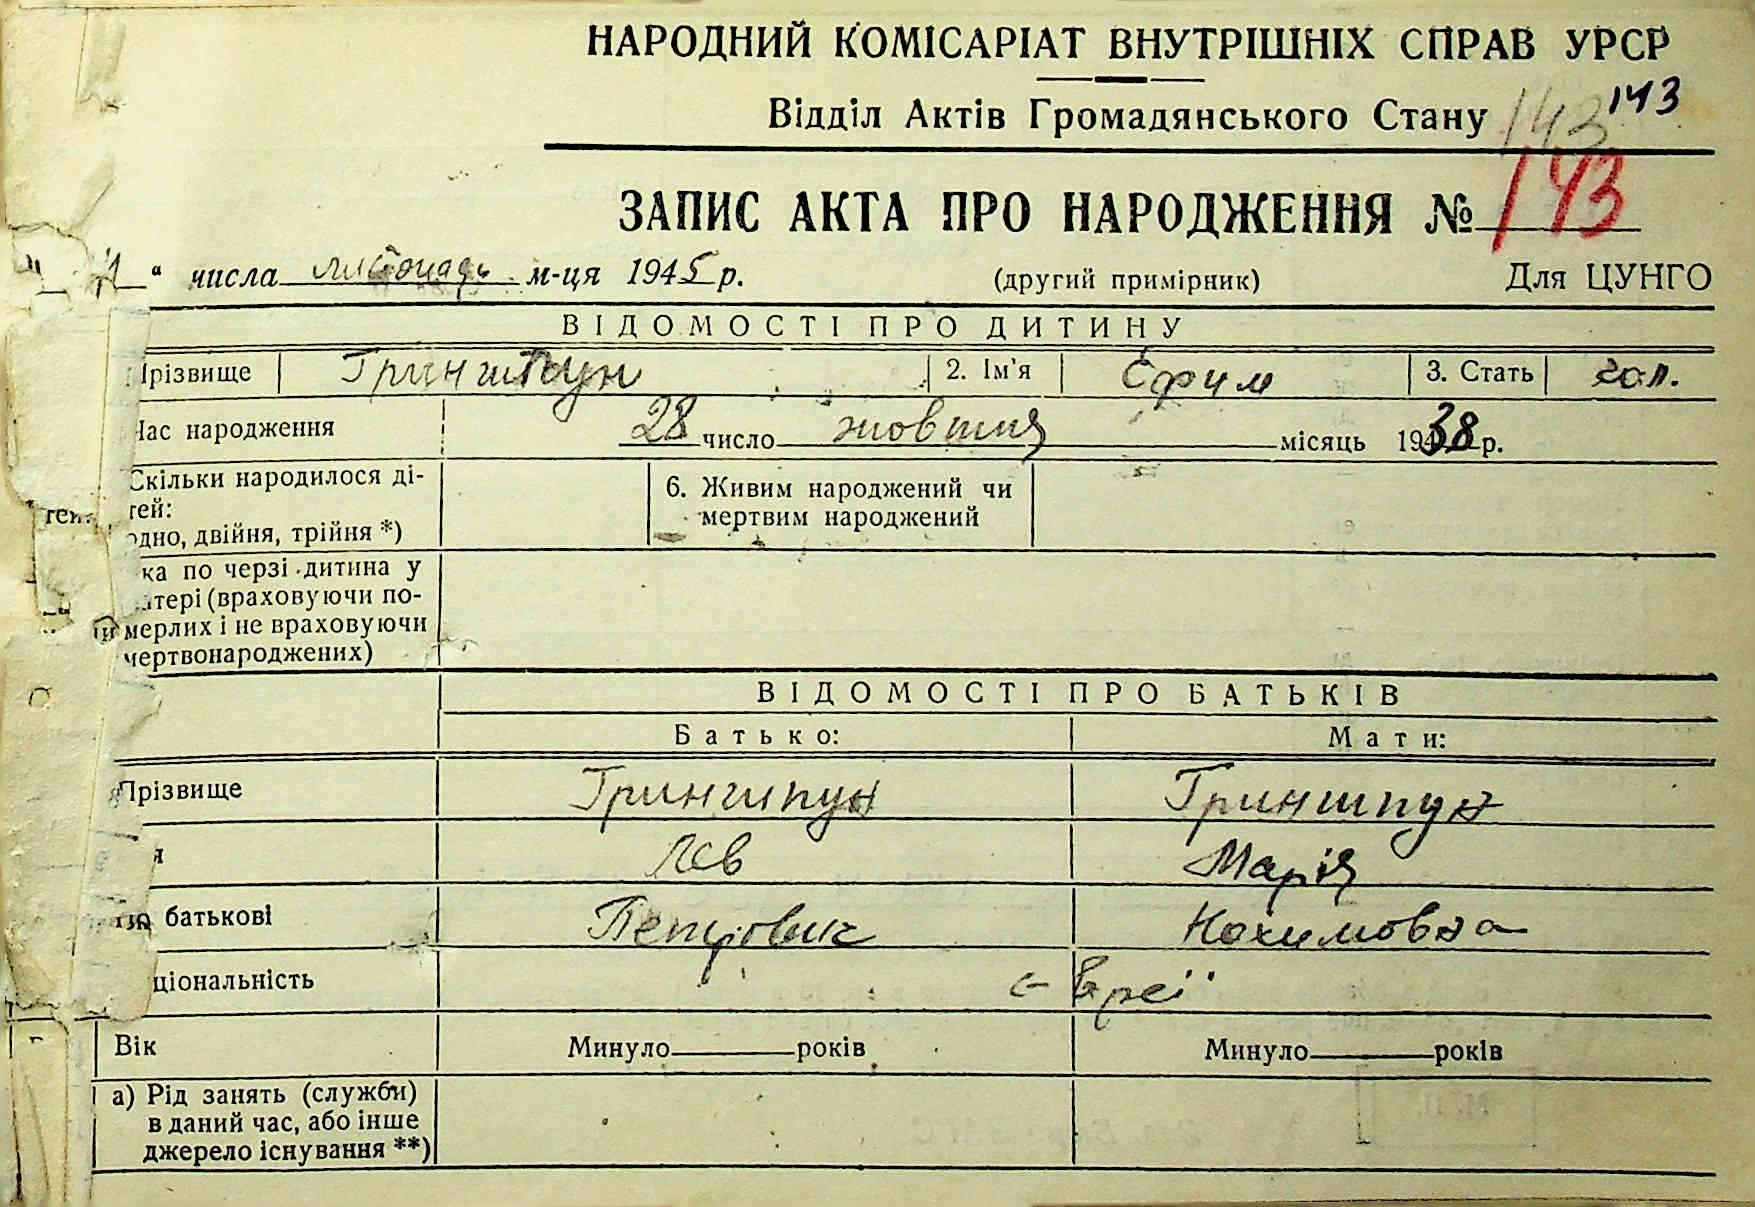 НАРОДНИЙ КОМІСАРІАТ ВНУТРІШНІХ СПРАВ УРСР
Відділ Актів Громадянського Стану 143 143
ЗАПИС АКТА ПРО НАРОДЖЕННЯ № 143
" числа листопада м-ця 1945 р. (другий примірник) Для ЦУНГО
ВІДОМОСТІ ПРО ДИТИНУ
Прізвище Гриншпун 2. Ім'я Ефим 3. Стать чол.
Час народження 28 число жовтня місяць 1938 р.
Скільки народилося ді-
тей:
одно, двійня, трійня *)
6. Живим народжений чи
мертвим народжений
ка по черзі дитина у
матері (враховуючи по-
мерлих і не враховуючи
мертвонароджених)
ВІДОМОСТІ ПРО БАТЬКІВ
Батько: Мати:
Прізвище Гриншпун Гриншпун
я Лев Марія
По батькові Петрович Нохимовна
ціональність Євреї
Вік Минуло років Минуло років
а) Рід занять (служби)
в даний час, або інше
джерело існування **)